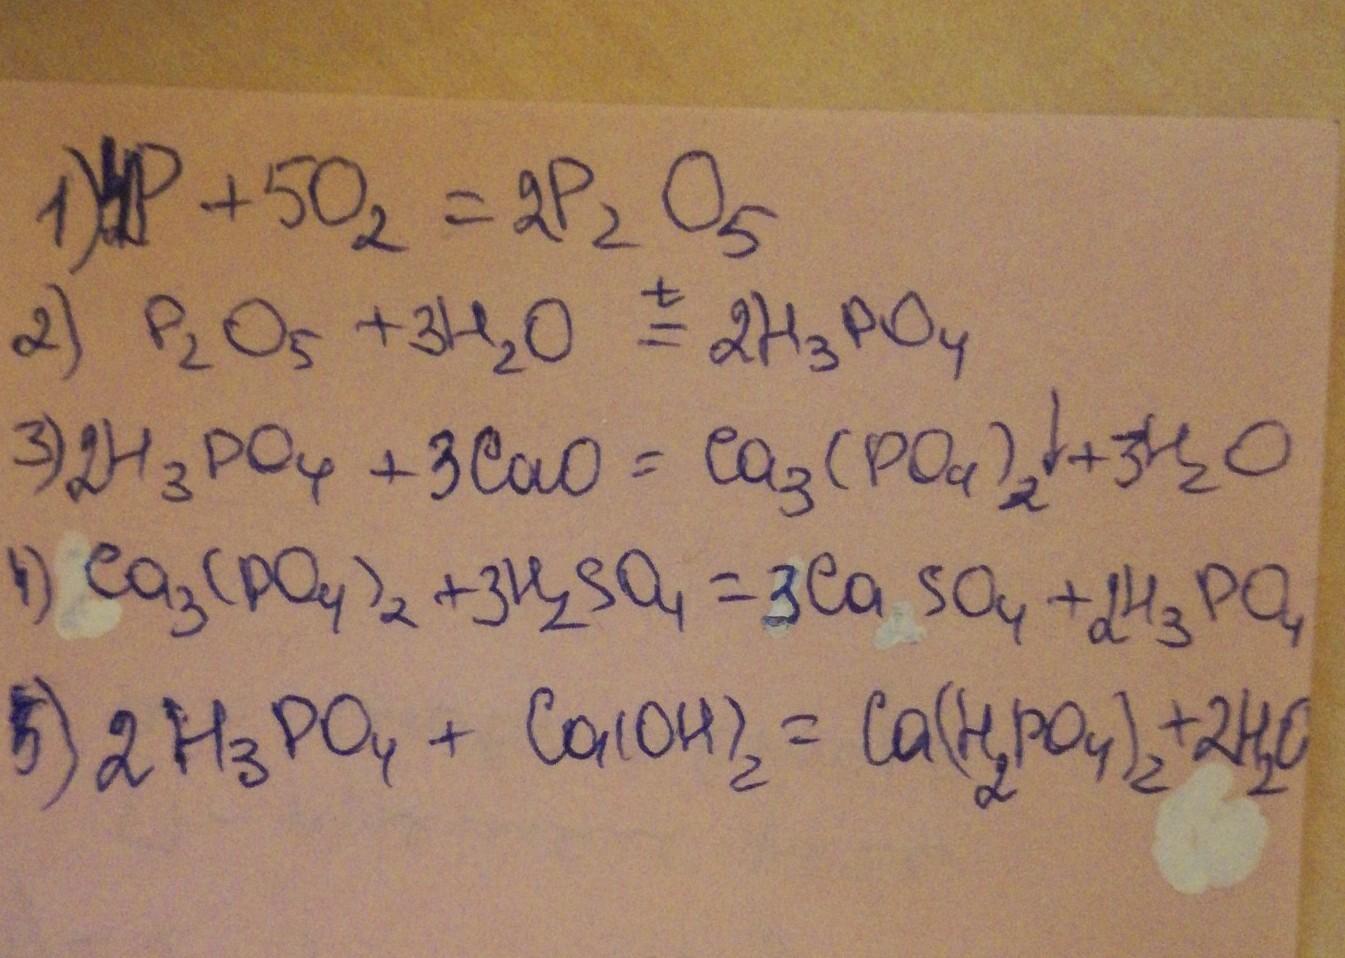 1) 4P + 5O₂ = 2P₂O₅
2) P₂O₅ + 3H₂O =ᵗ 2H₃PO₄
3) 2H₃PO₄ + 3CaO = Ca₃(PO₄)₂↓ + 3H₂O
4) Ca₃(PO₄)₂ + 3H₂SO₄ = 3CaSO₄ + 2H₃PO₄
5) 2H₃PO₄ + Ca(OH)₂ = Ca(H₂PO₄)₂ + 2H₂O